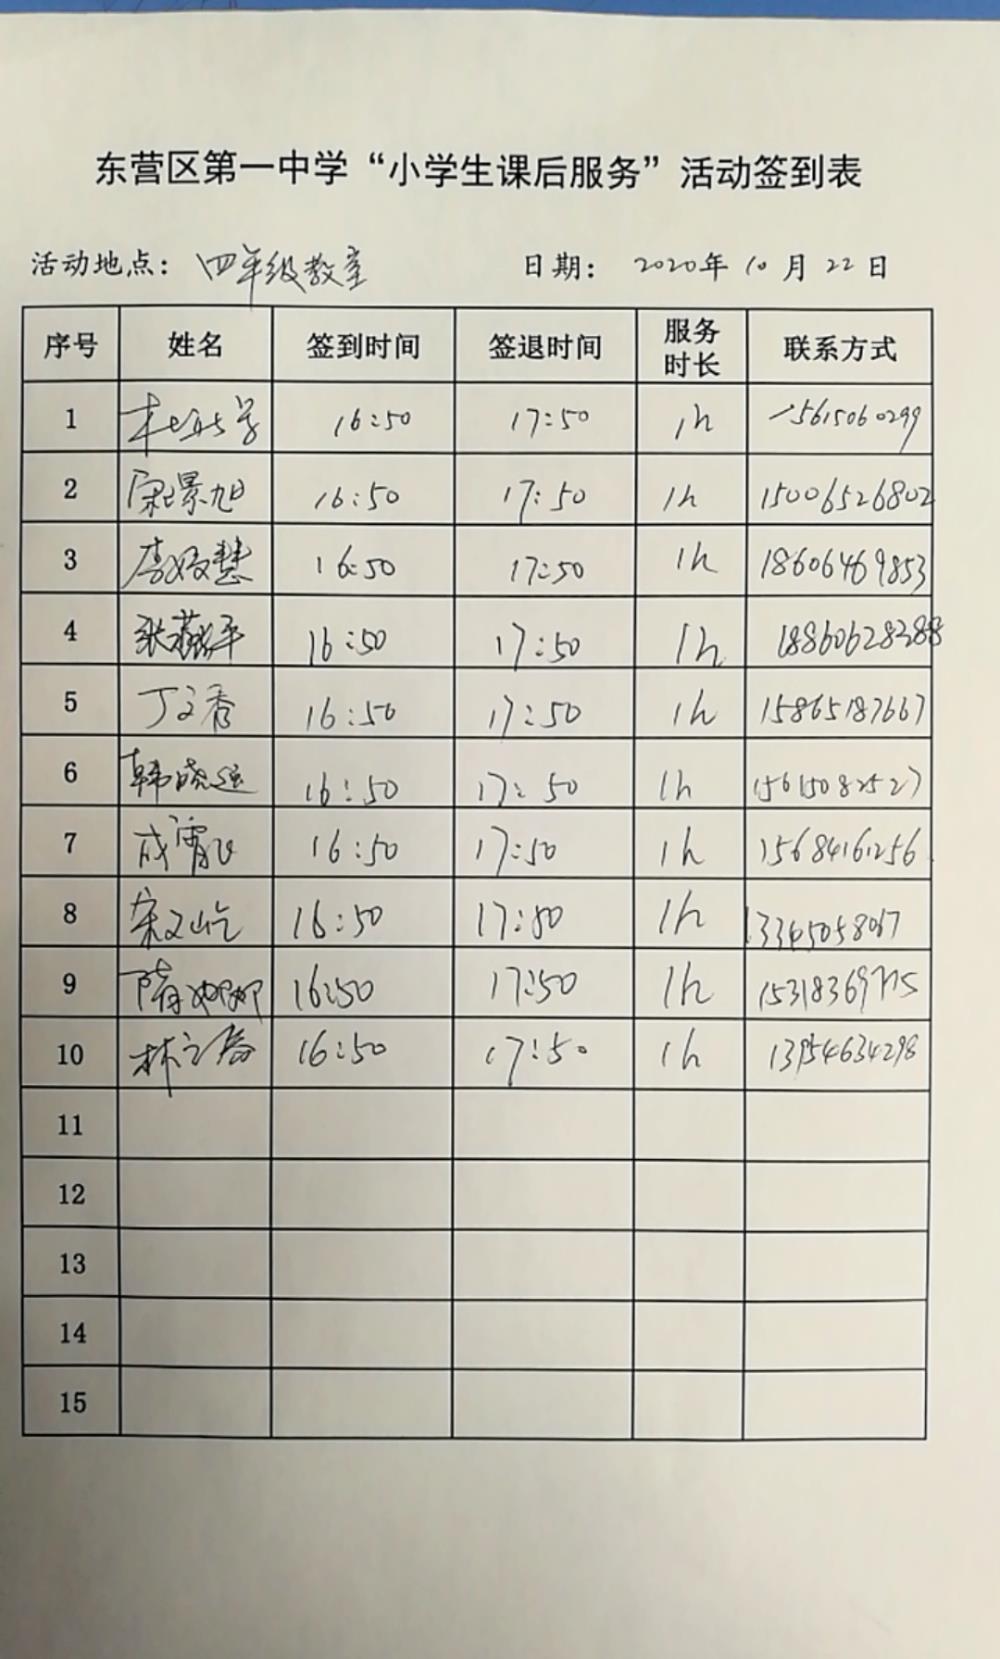 东营区第一中学“小学生课后服务”活动签到表
活动地点：四年级教室 日期：2020年10月22日
序号 姓名 签到时间 签退时间 服务时长 联系方式
1 16:50 17:50 1h 15615060299
2 宋景旭 16:50 17:50 1h 15006526802
3 李媛慧 16:50 17:50 1h 18606469853
4 16:50 17:50 1h 18860628288
5 丁文香 16:50 17:50 1h 15865187667
6 韩晓运 16:50 17:50 1h 15615082527
7 成霄飞 16:50 17:50 1h 15684161256
8 宋文屹 16:50 17:50 1h
9 隋娜娜 16:50 17:50 1h 15318369775
10 林立春 16:50 17:50 1h 13954634298
11
12
13
14
15